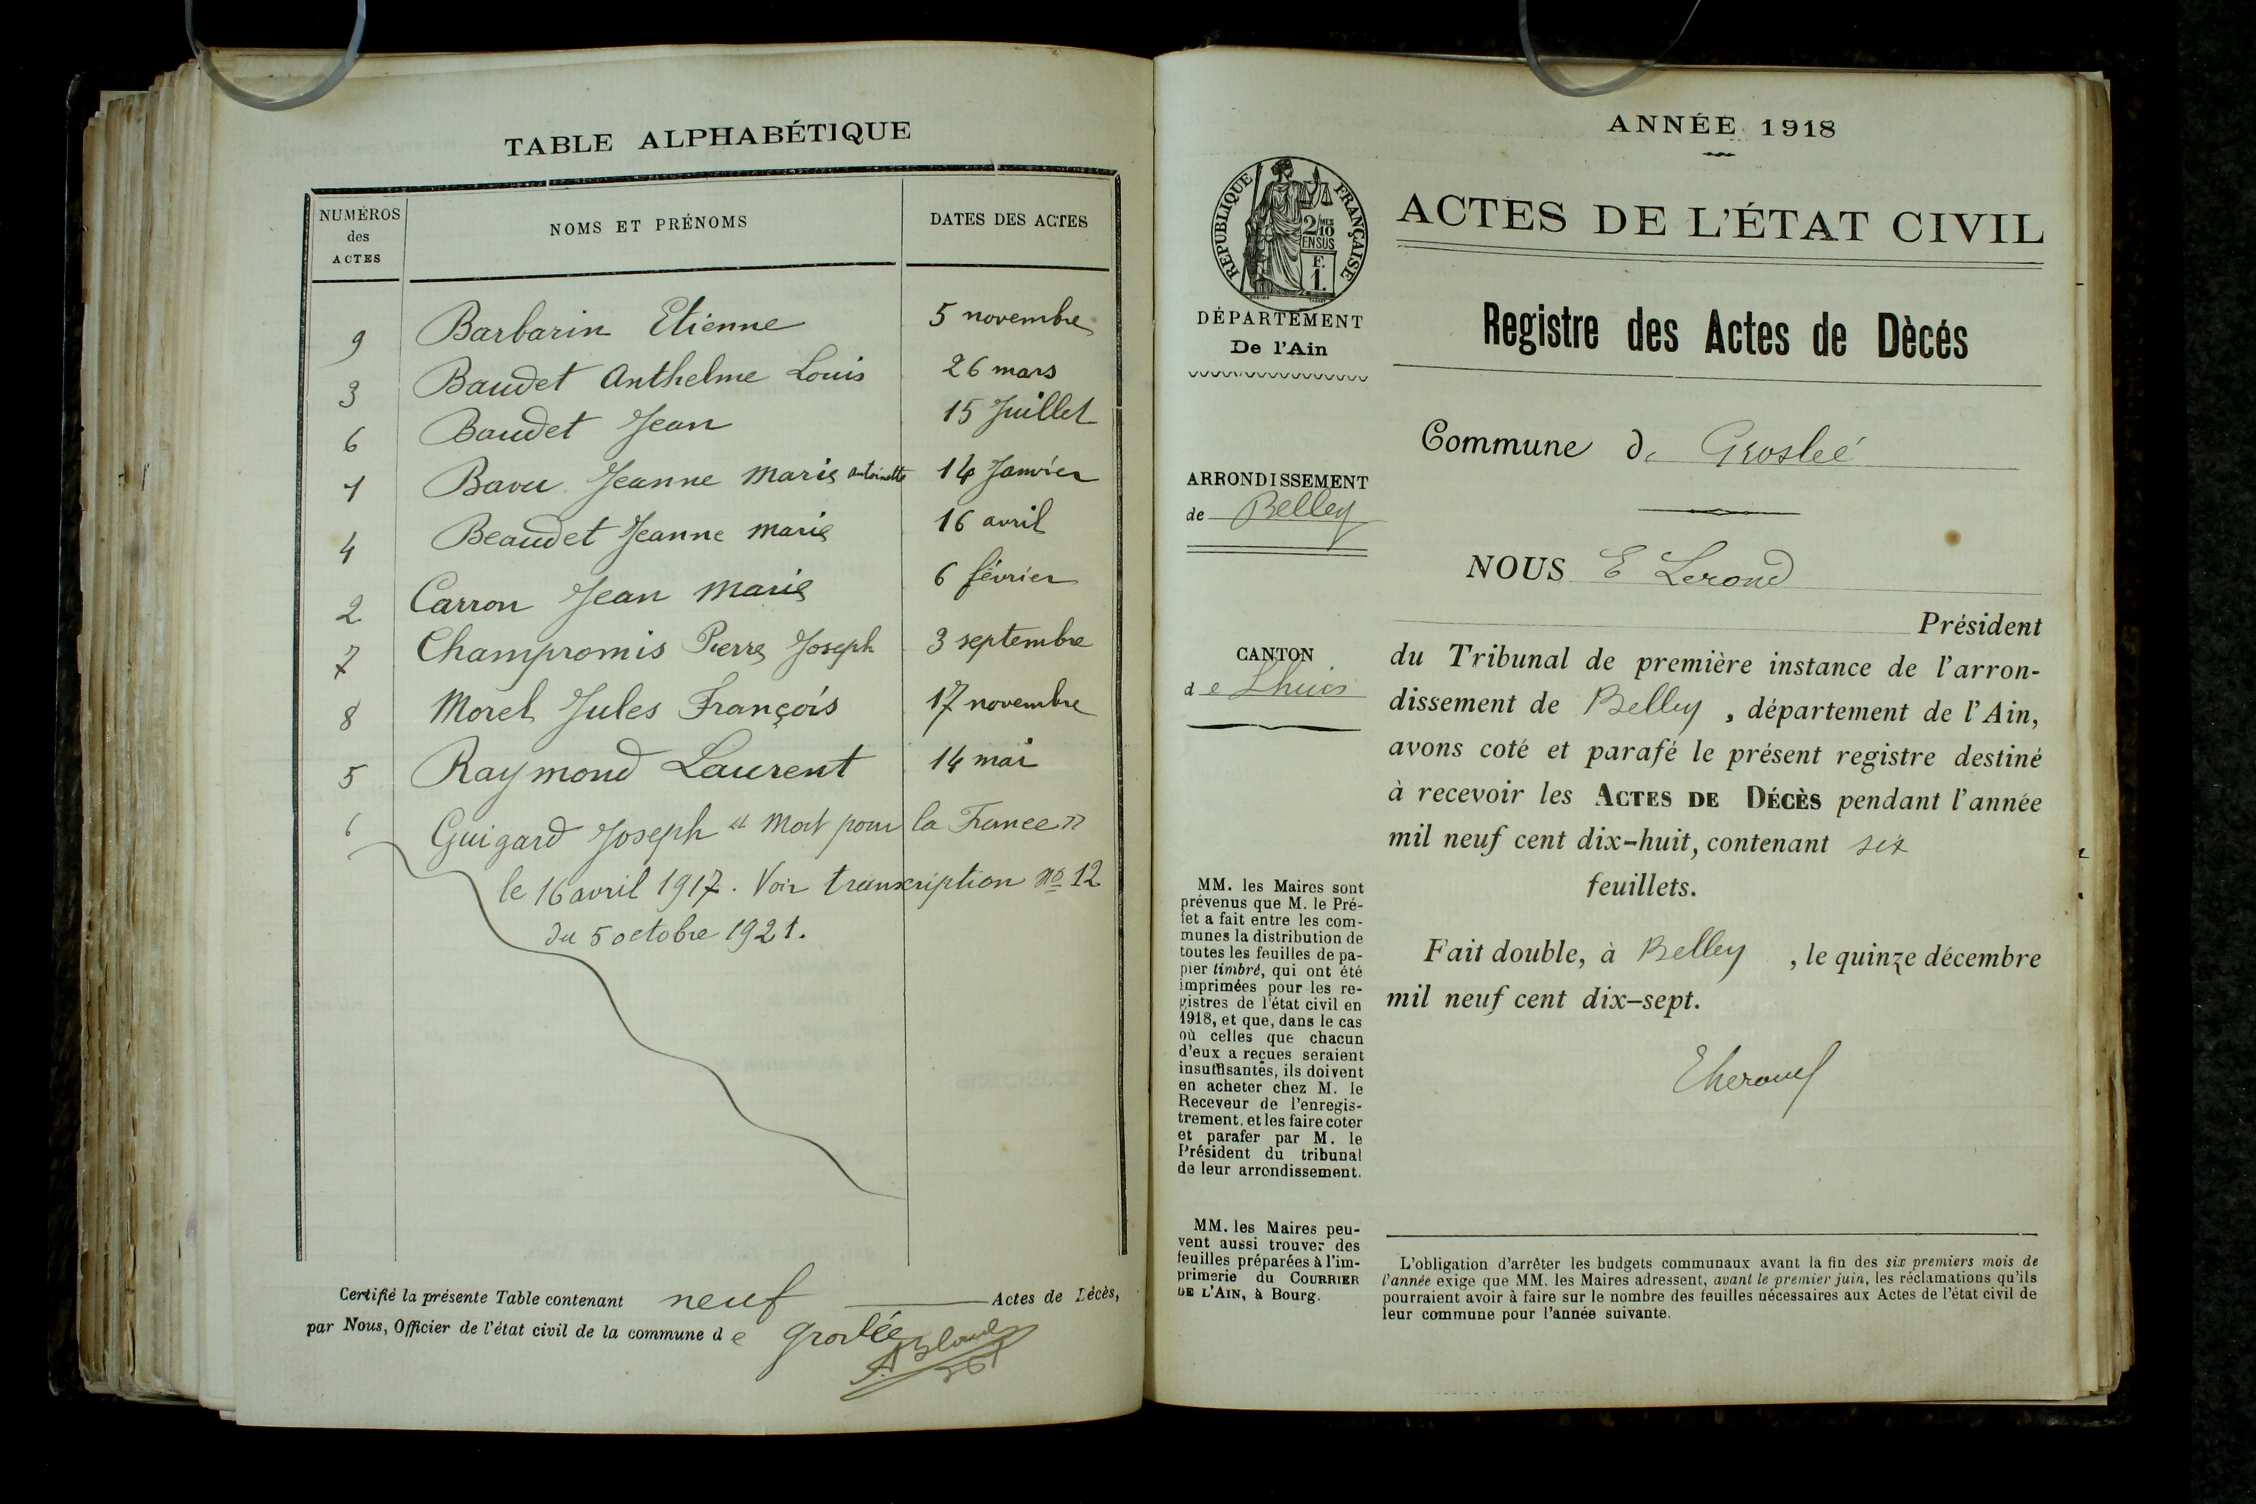 TABLE ALPHABÉTIQUE
NUMÉROS
des
ACTES
NOMS ET PRÉNOMS
DATES DES ACTES
9 Barbarin Etienne 5 novembre
3 Baudet Anthelme Louis 26 mars
6 Baudet Jean 15 Juillet
1 Bavu Jeanne Marie antoinette 14 Janvier
4 Beaudet Jeanne Marie 16 avril
2 Carron Jean Marie 6 février
7 Champromis Pierre Joseph 3 septembre
8 Morel Jules François 17 novembre
5 Raymond Laurent 14 mai
Guigard Joseph "Mort pour la France"
le 16 avril 1917. Voir transcription No 12
du 5 octobre 1921.
Certifié la présente Table contenant neuf Actes de Décès,
par Nous, Officier de l'état civil de la commune de Groslée
ANNÉE 1918
RÉPUBLIQUE FRANÇAISE
2/10
EN SUS
F.
1.
DÉPARTEMENT
De l'Ain
ARRONDISSEMENT
de Belley
CANTON
de Lhuis
MM. les Maires sont
prévenus que M. le Pré-
fet a fait entre les com-
munes la distribution de
toutes les feuilles de pa-
pier timbré, qui ont été
imprimées pour les re-
gistres de l'état civil en
1918, et que, dans le cas
où celles que chacun
d'eux a reçues seraient
insuffisantes, ils doivent
en acheter chez M. le
Receveur de l'enregis-
trement, et les faire coter
et parafer par M. le
Président du tribunal
de leur arrondissement.
MM. les Maires peu-
vent aussi trouver des
feuilles préparées à l'im-
primerie du COURRIER
DE L'AIN, à Bourg.
ACTES DE L'ÉTAT CIVIL
Registre des Actes de Dècés
Commune de Groslée
NOUS E Lerond
Président
du Tribunal de première instance de l'arron-
dissement de Belley, département de l'Ain,
avons coté et parafé le présent registre destiné
à recevoir les ACTES DE DÉCÈS pendant l'année
mil neuf cent dix-huit, contenant six
feuillets.
Fait double, à Belley, le quinze décembre
mil neuf cent dix-sept.
L'obligation d'arrêter les budgets communaux avant la fin des six premiers mois de
l'année exige que MM. les Maires adressent, avant le premier juin, les réclamations qu'ils
pourraient avoir à faire sur le nombre des feuilles nécessaires aux Actes de l'état civil de
leur commune pour l'année suivante.